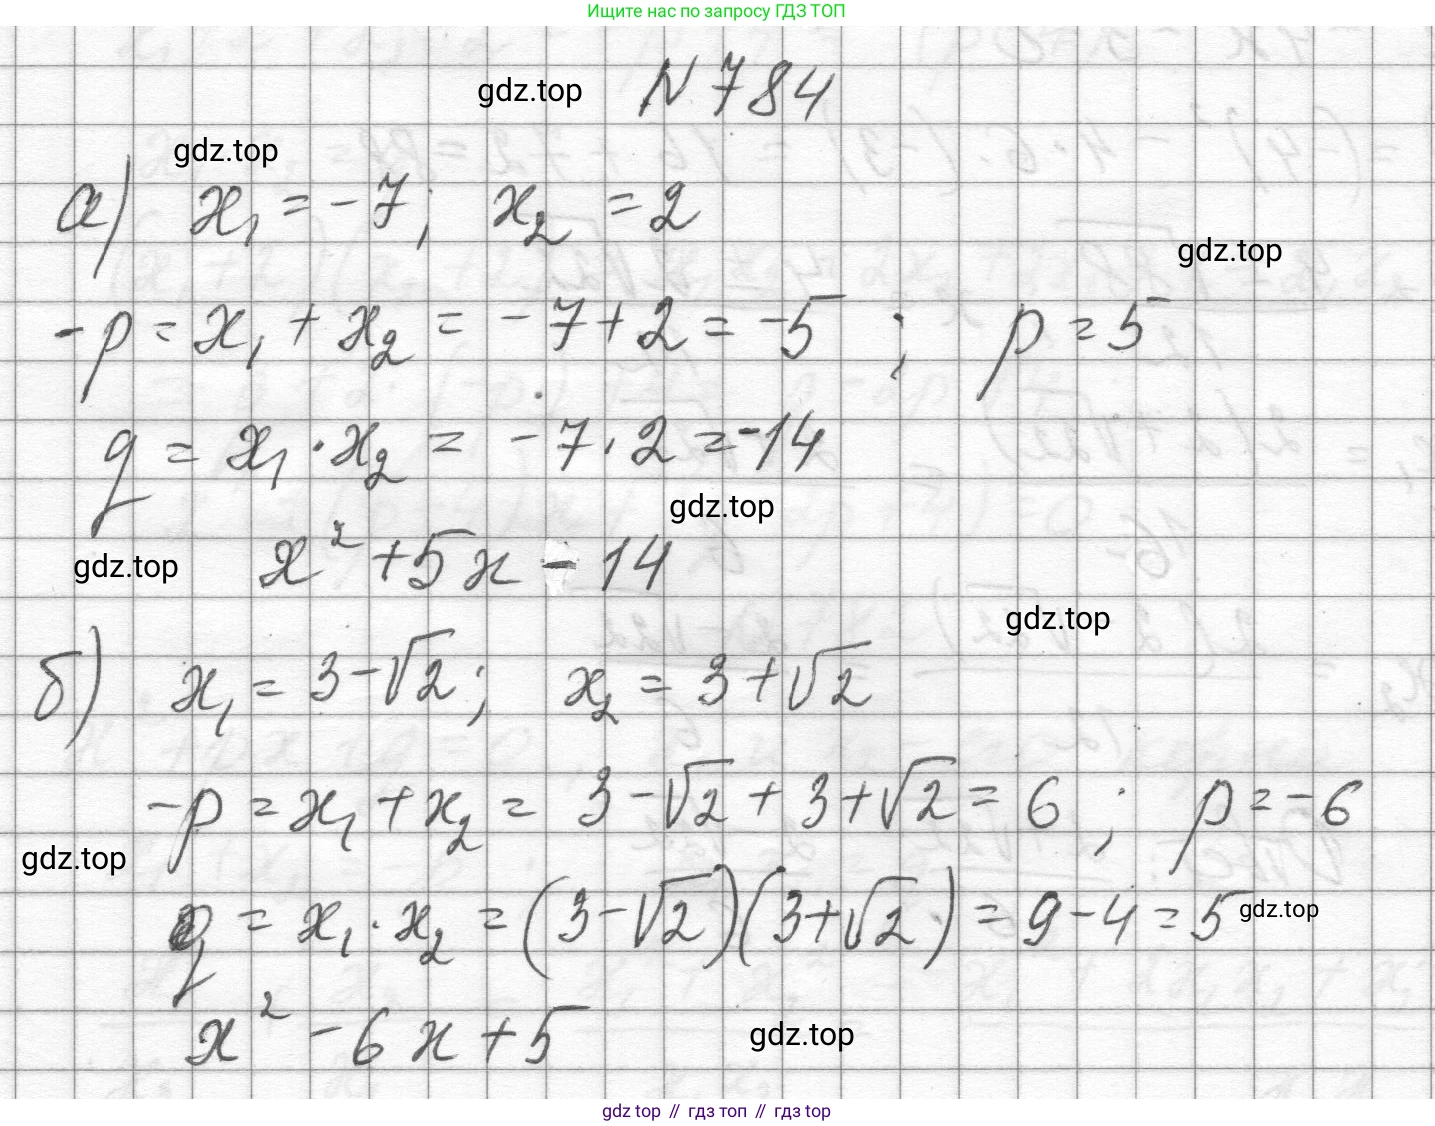 Ищите нас по запросу ГДЗ ТОП
gdz.top N 784
gdz.top
а) x₁ = -7; x₂ = 2
gdz.top
-p = x₁ + x₂ = -7+2 = -5 ; p = 5
q = x₁·x₂ = -7·2 = -14
gdz.top
gdz.top x² +5x - 14
gdz.top
б) x₁ = 3-√2; x₂ = 3+√2
-p = x₁ + x₂ = 3-√2 + 3+√2 = 6 ; p = -6
gdz.top
q = x₁·x₂ = (3-√2)(3+√2) = 9-4 = 5 gdz.top
x² - 6x + 5
gdz.top
gdz top // гдз топ // gdz top